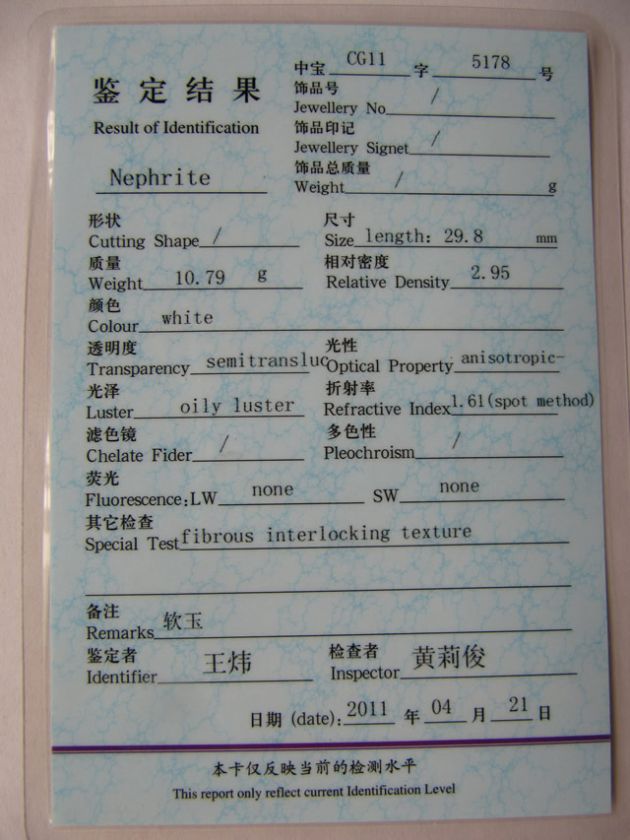 中宝 CG11 字 5178 号
鉴定结果
Result of Identification
饰品号
Jewellery No /
饰品印记
Jewellery Signet /
饰品总质量
Weight / g
Nephrite
形状
Cutting Shape /
尺寸
Size length: 29.8 mm
质量
Weight 10.79 g
相对密度
Relative Density 2.95
颜色
Colour white
透明度
Transparency semitransluc
光性
Optical Property anisotropic-
光泽
Luster oily luster
折射率
Refractive Index 1.61(spot method)
滤色镜
Chelate Fider /
多色性
Pleochroism /
荧光
Fluorescence:LW none SW none
其它检查
Special Test fibrous interlocking texture
备注
Remarks 软玉
鉴定者
Identifier 王炜
检查者
Inspector 黄莉俊
日期 (date): 2011 年 04 月 21 日
本卡仅反映当前的检测水平
This report only reflect current Identification Level